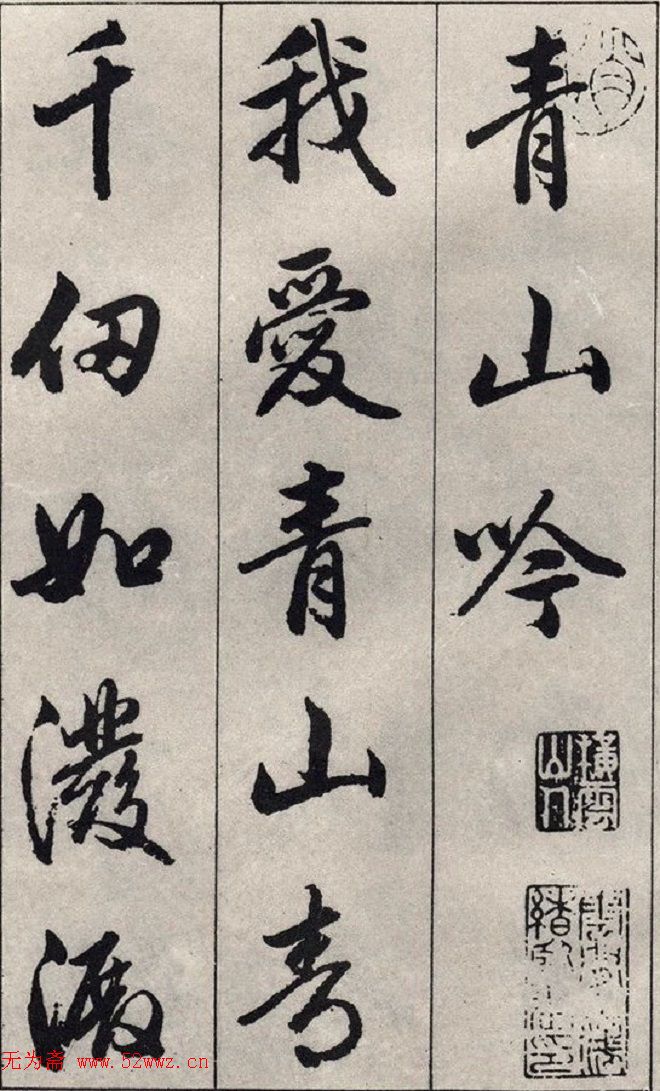 青山吟
橫雲山人
我愛青山青
千仞如潑
无为斋 www.52wwz.cn